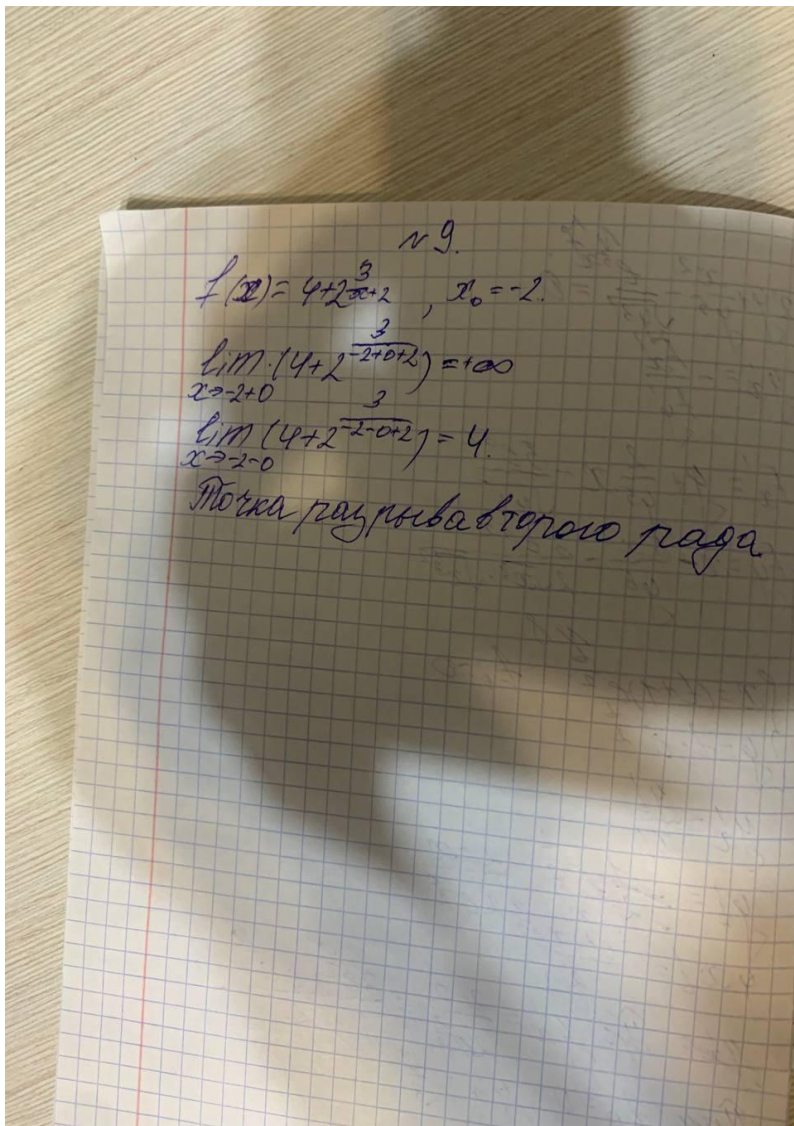 №9.
f(x) = 4+2^{\frac{3}{x+2}}, x₀ = -2.
lim (4+2^{\frac{3}{-2+0+2}}) = +∞
x→-2+0
lim (4+2^{\frac{3}{-2-0+2}}) = 4.
x→-2-0
Точка разрыва второго рада.